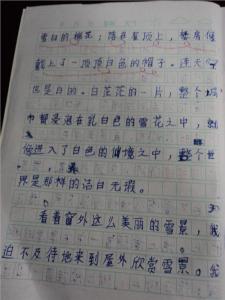 雪白的棉花；落在屋顶上，整房像
戴上了一顶顶白色的帽子。连天
也是白的。白茫茫的一片，整个城
市都浸泡在乳白色的雪花之中，
像进入了白色的仙境之中，整个世
界是那样的洁白无瑕。
看着窗外这么美丽的雪景，我
迫不及待地来到屋外欣赏雪景。我